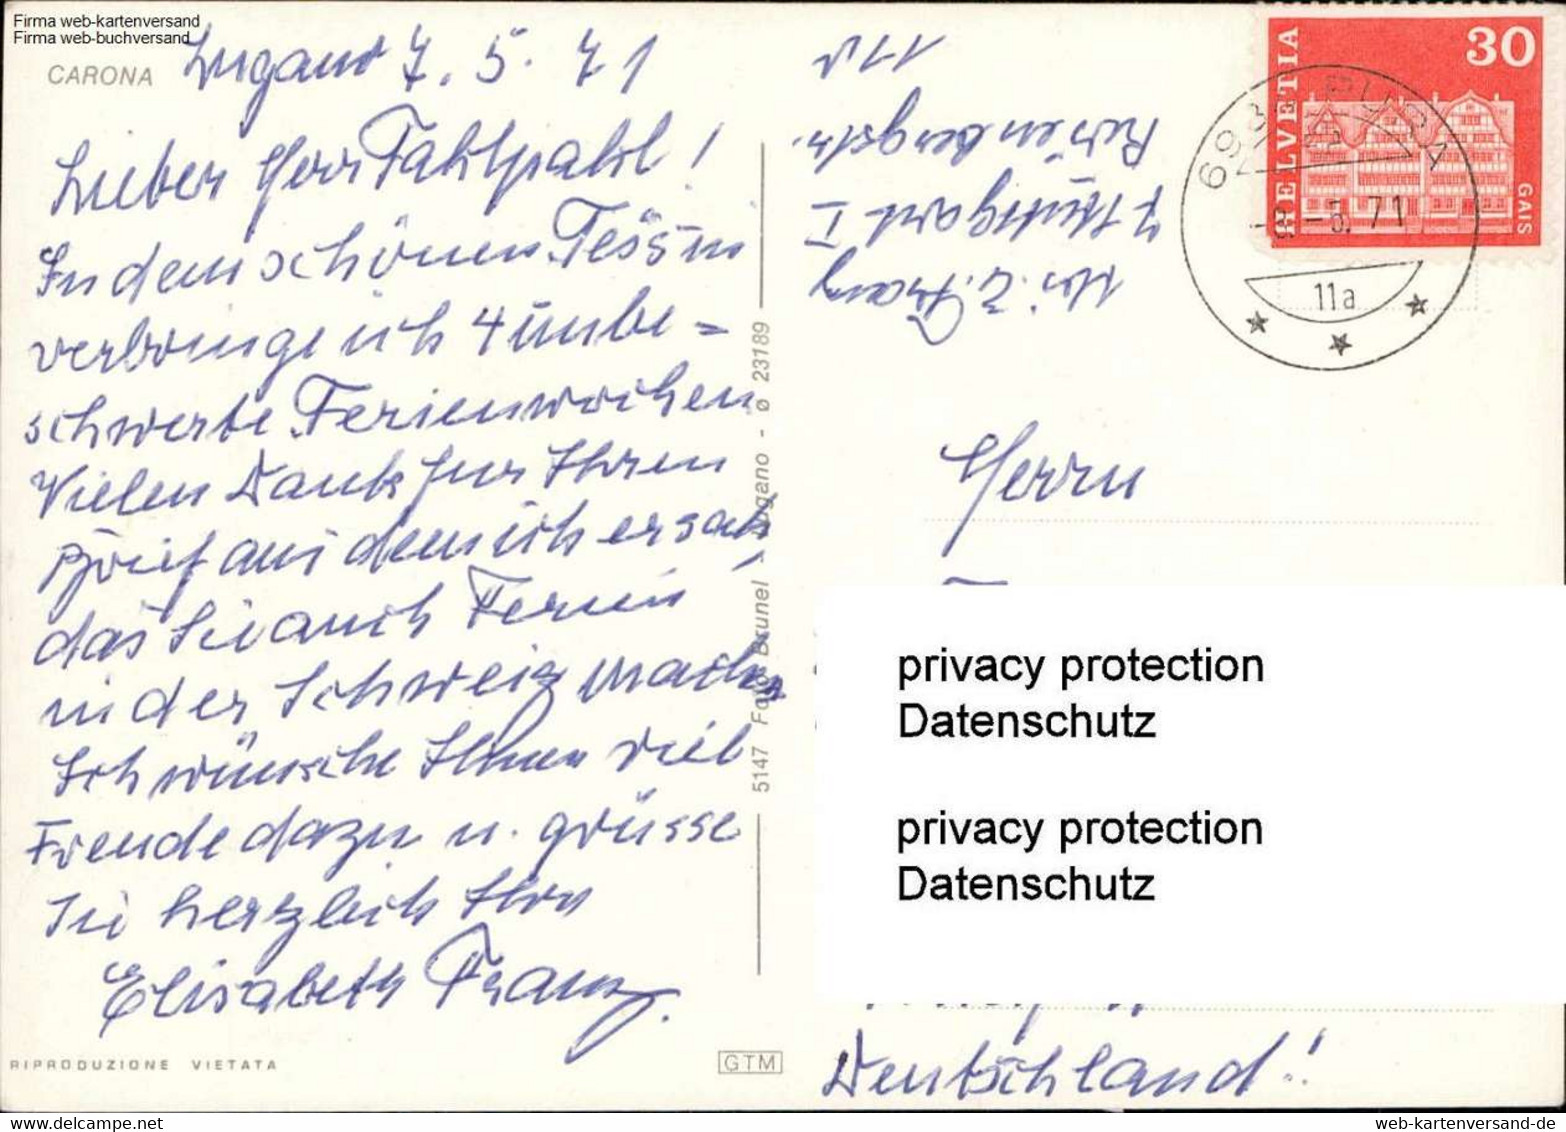 Firma web-kartenversand
Firma web-buchversand
CARONA
Lugano 7. 5. 71
Lieber Herr !
In dem schönen Tessin
verbringe ich 4 unbe =
schwerte Ferienwochen
Vielen Dank für Ihren
Brief aus dem ich ersah,
das Sie auch Ferien
in der Schweiz machen
Ich wünsche Ihnen viel
Freude dazu u. grüsse
Sie herzlich Ihre
Elisabeth Franz.
RIPRODUZIONE VIETATA
GTM
5147 Foto Brunel - Lugano - ø 23189
E. Franz
7 Stuttgart 1
HELVETIA
30
GAIS
693 PURA
71
11a
Herrn
privacy protection
Datenschutz
privacy protection
Datenschutz
Deutschland!
web-kartenversand-de